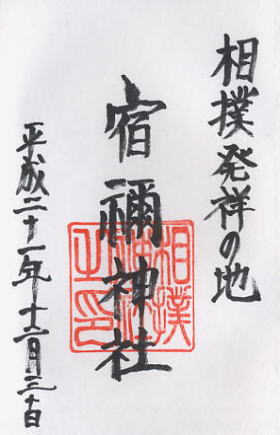 相撲発祥の地
宿禰神社
平成二十一年十二月三十日
相撲
神社
之印